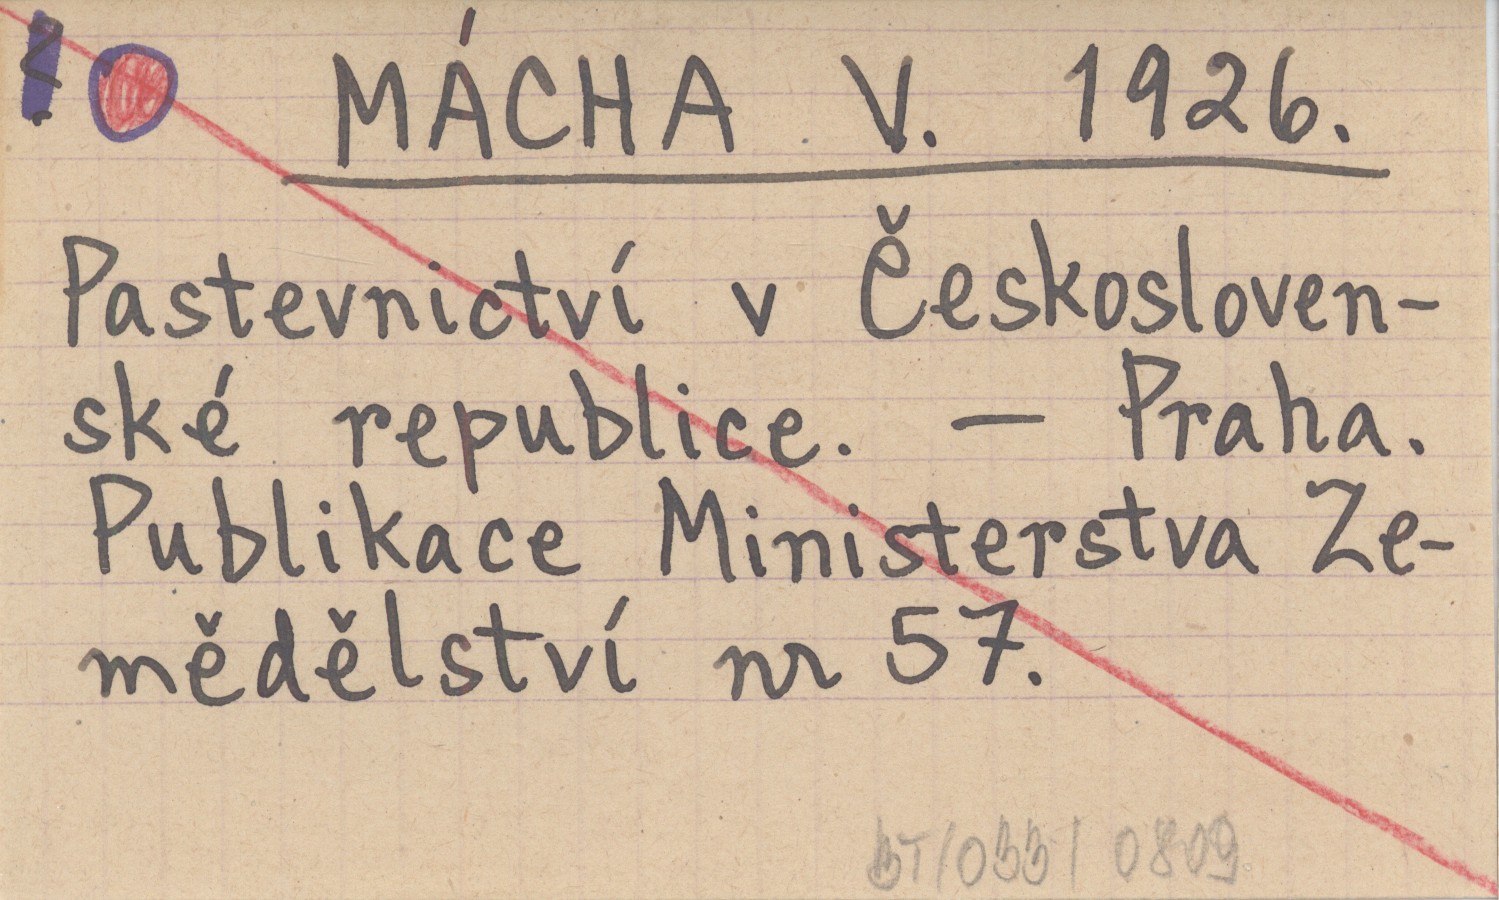 MÁCHA V. 1926.
Pastevnictví v Českosloven-
ské republice. — Praha.
Publikace Ministerstva Ze-
mědělství nr 57.
0809